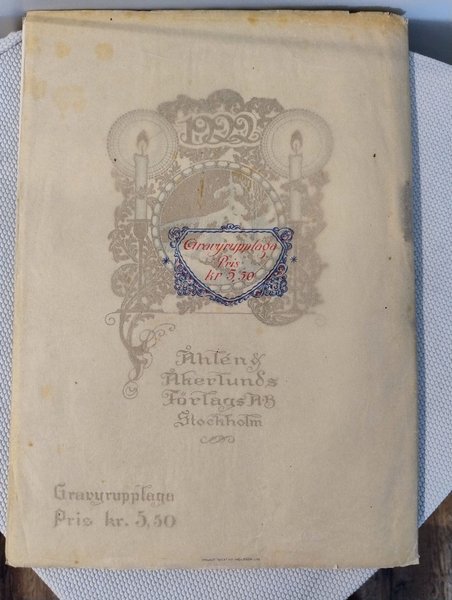 1922
Gravyrupplaga
Pris
kr 5,50
Åhlén &
Åkerlunds
Förlags AB
Stockholm
Gravyrupplaga
Pris kr. 5,50